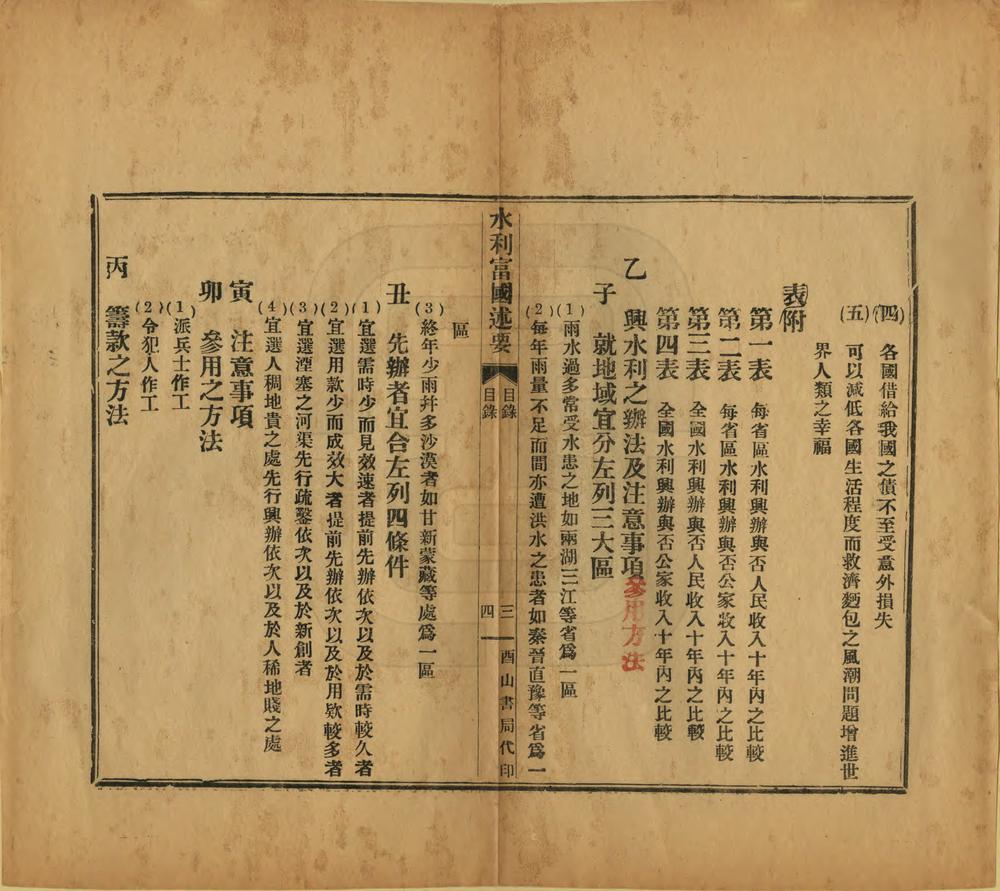 (四) 各國借給我國之債不至受意外損失
(五) 可以減低各國生活程度而救濟麵包之風潮問題增進世
界人類之幸福
附表
第一表 每省區水利興辦與否人民收入十年內之比較
第二表 每省區水利興辦與否公家收入十年內之比較
第三表 全國水利興辦與否人民收入十年內之比較
第四表 全國水利興辦與否公家收入十年內之比較
乙 興水利之辦法及注意事項參用方法
子 就地域宜分左列三大區
(1) 雨水過多常受水患之地如兩湖三江等省爲一區
(2) 每年雨量不足而間亦遭洪水之患者如秦晉直豫等省爲一
水利富國述要
目錄
三
酉山書局代印
目錄
四
區
(3) 終年少雨并多沙漠者如甘新蒙藏等處爲一區
丑 先辦者宜合左列四條件
(1) 宜選需時少而見效速者提前先辦依次以及於需時較久者
(2) 宜選用款少而成效大者提前先辦依次以及於用欵較多者
(3) 宜選湮塞之河渠先行疏鑿依次以及於新創者
(4) 宜選人稠地貴之處先行興辦依次以及於人稀地賤之處
寅 注意事項
卯 參用之方法
(1) 派兵士作工
(2) 令犯人作工
丙 籌款之方法